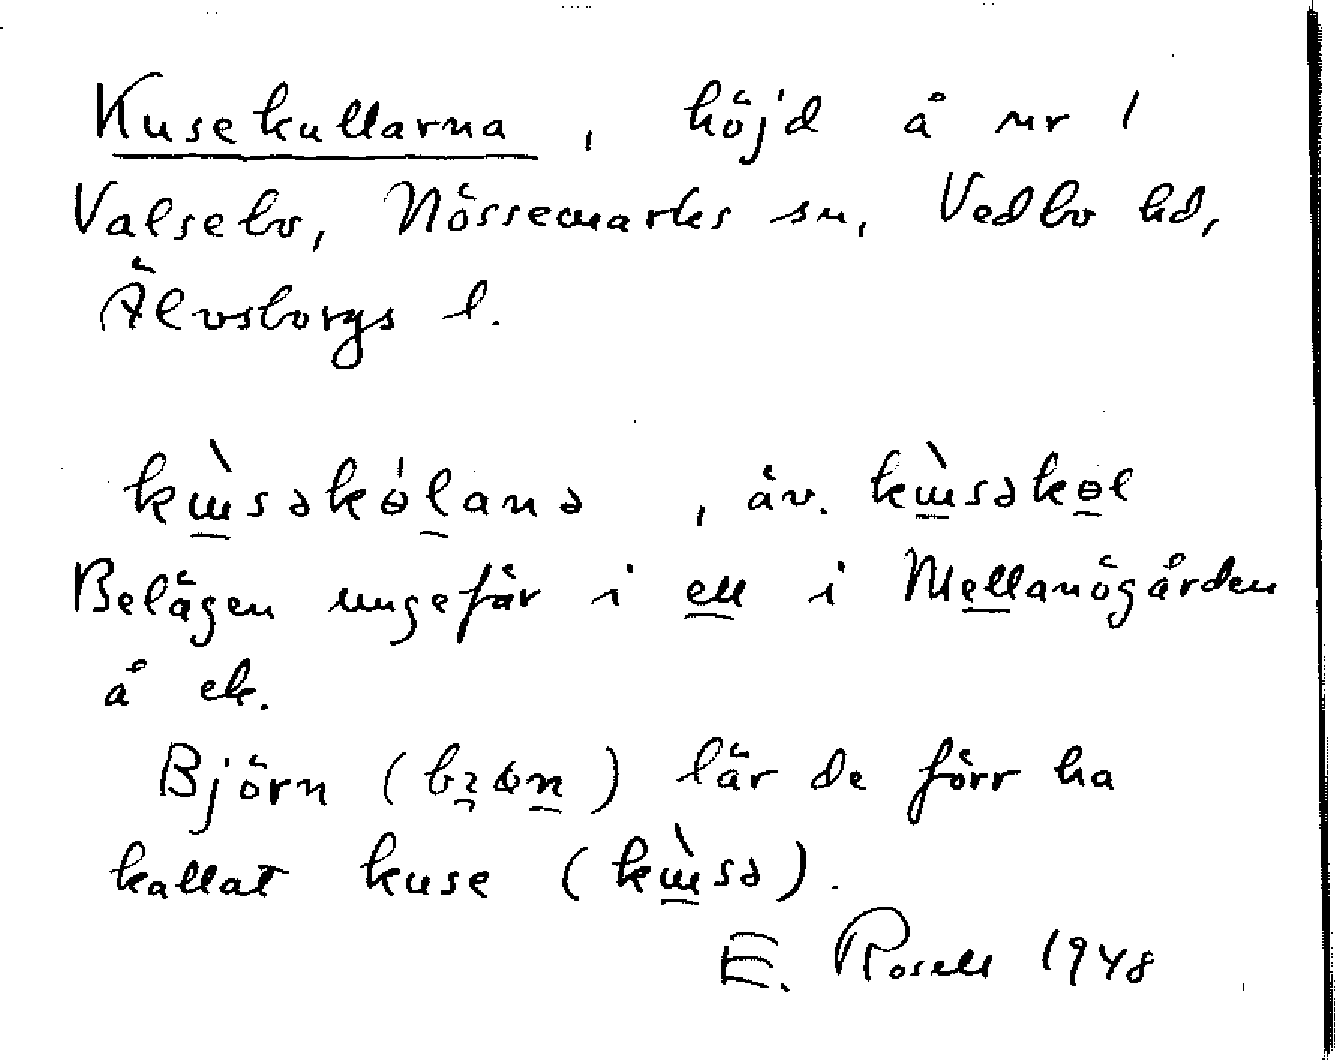 Kusekullarna, höjd å nr 1
Valsebo, Nössemarks sn, Vedbo hd,
Älvsborgs l.
kɯ̀səkɵ́lanə, äv. kɯ̀səkɵl
Belägen ungefär i ell i Mellanögården
å ek.
Björn (bʒɵn) lär de förr ha
kallat kuse (kɯ̀sə).
E. Rosell 1948